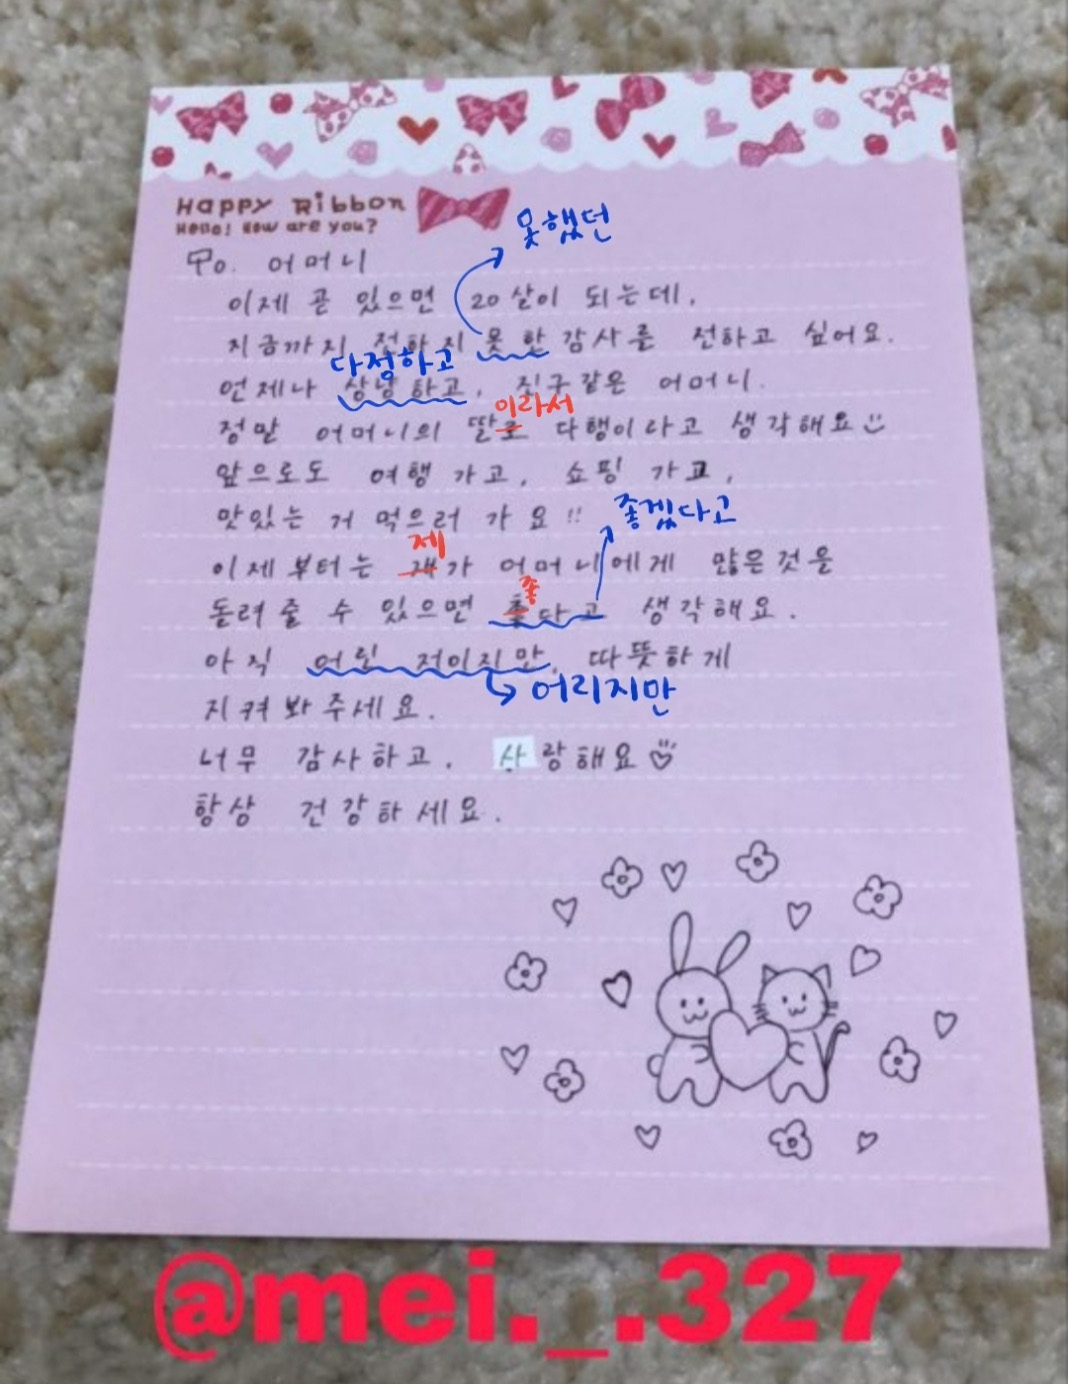 Happy Ribbon
Hello! How are you?
못했던
To. 어머니
이제 곧 있으면 20살이 되는데,
지금까지 전하지 못 한 감사를 전하고 싶어요.
다정하고
언제나 상냥하고, 친구같은 어머니.
이라서
정말 어머니의 딸로 다행이라고 생각해요
앞으로도 여행 가고, 쇼핑 가고,
맛있는 거 먹으러 가요!!
좋겠다고
제
이제부터는 가 어머니에게 많은것을
좋
돌려줄 수 있으면 다고 생각해요.
아직 어린 저이지만, 따뜻하게
어리지만
지켜봐주세요.
너무 감사하고, 사랑해요
항상 건강하세요.
@mei._.327